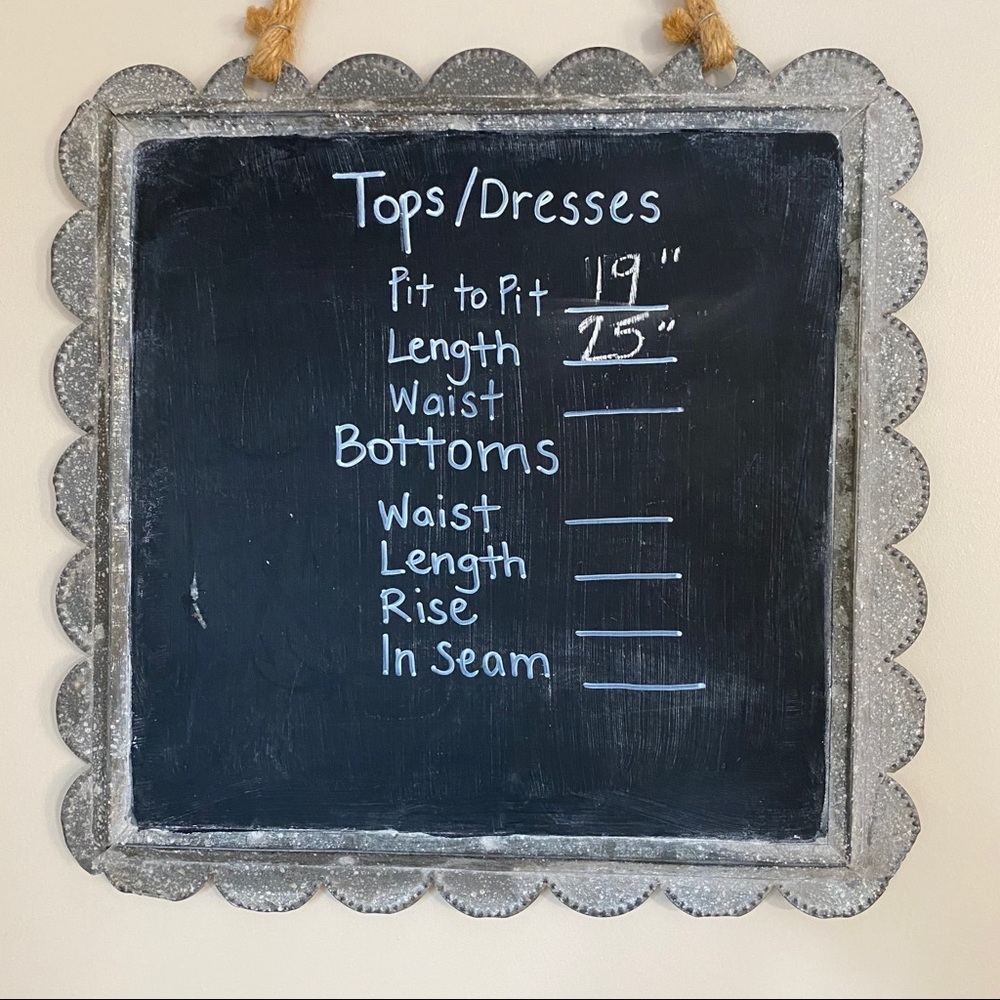 Tops/Dresses
Pit to Pit 19"
Length 25"
Waist
Bottoms
Waist
Length
Rise
In Seam